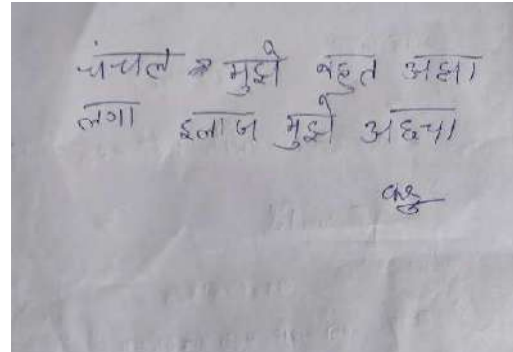 चंचल मुझे बहुत अछा
लगा इलाज मुझे अछचा